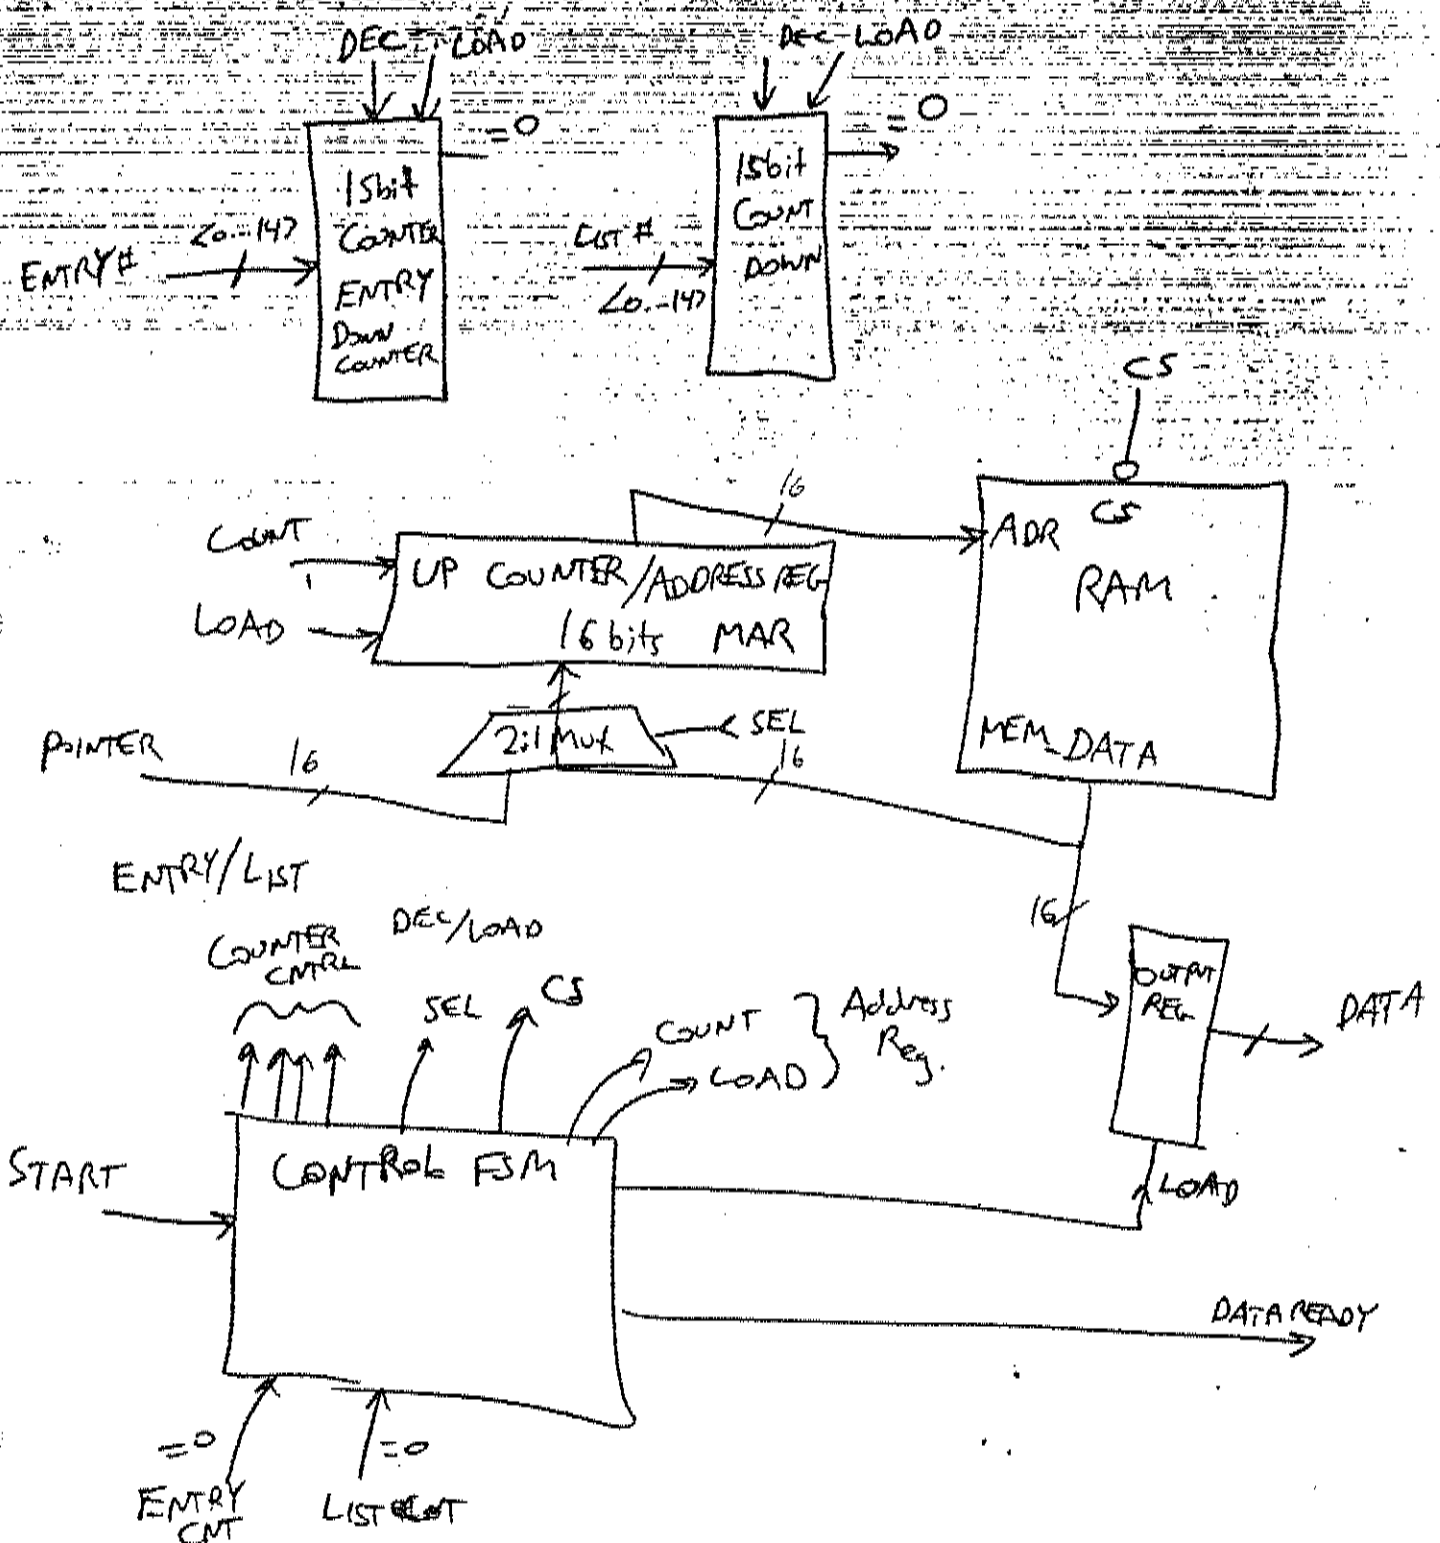 DEC LOAD
DEC LOAD
=0
=0
15bit
COUNTER
ENTRY
DOWN
COUNTER
15bit
COUNT
DOWN
ENTRY#
<0..14>
LIST #
<0..14>
CS
CS
ADR
RAM
MEM_DATA
16
COUNT
LOAD
UP COUNTER/ADDRESS REG
16 bits MAR
2:1 MUX
SEL
16
POINTER
16
ENTRY/LIST
COUNTER
CNTRL
DEC/LOAD
SEL
CS
COUNT
LOAD
Address
Reg.
16
OUTPUT
REG
DATA
LOAD
START
CONTROL FSM
DATA READY
=0
ENTRY
CNT
=0
LIST CNT